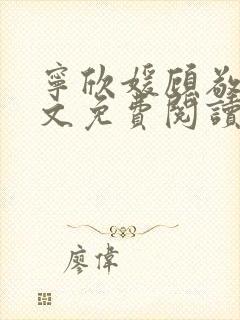 寧欣媛顧敬
文免費閱讀
廖偉